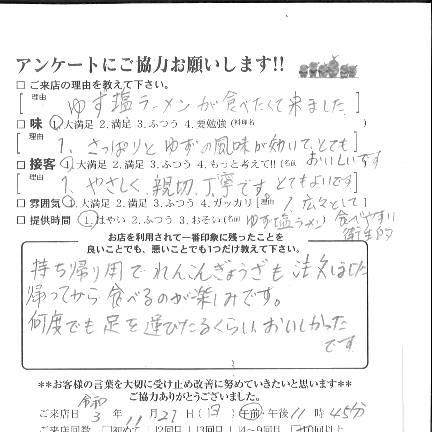 アンケートにご協力お願いします!!
□ ご来店の理由を教えて下さい。
[理由 ゆず塩ラーメンが食べたくて来ました]
□ 味 1.大満足 2.満足 3.ふつう 4.要勉強(料理名 )
[理由 1、さっぱりとゆずの風味が効いて、とてもおいしいです]
□ 接客 1.大満足 2.満足 3.ふつう 4.もっと考えて!!(名前 )
[理由 1、やさしく、親切、丁寧です。とてもよいです]
□ 雰囲気 1.大満足 2.満足 3.ふつう 4.ガッカリ [理由 1、広々として食べやすい 衛生的]
□ 提供時間 1.はやい 2.ふつう 3.おそい(名前 ゆず塩ラーメン
お店を利用されて一番印象に残ったことを
良いことでも、悪いことでも1つだけ教えて下さい。
持ち帰り用でれんこんぎょうざも注文しました
帰ってから食べるのが楽しみです。
何度でも足を運びたくなるくらいおいしかった
です
**お客様の言葉を大切に受け止め改善に努めていきたいと思います**
ご協力ありがとうございました。
ご来店日 令和3年 11月 21日(日) 午前・午後 11時 45分
ご来店回数 □初めて □2回目 □3回目 □4〜9回